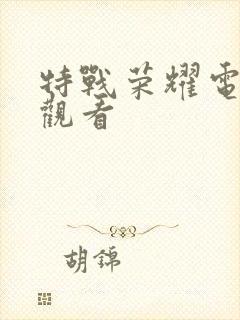 特戰荣耀電
觀看
胡錦